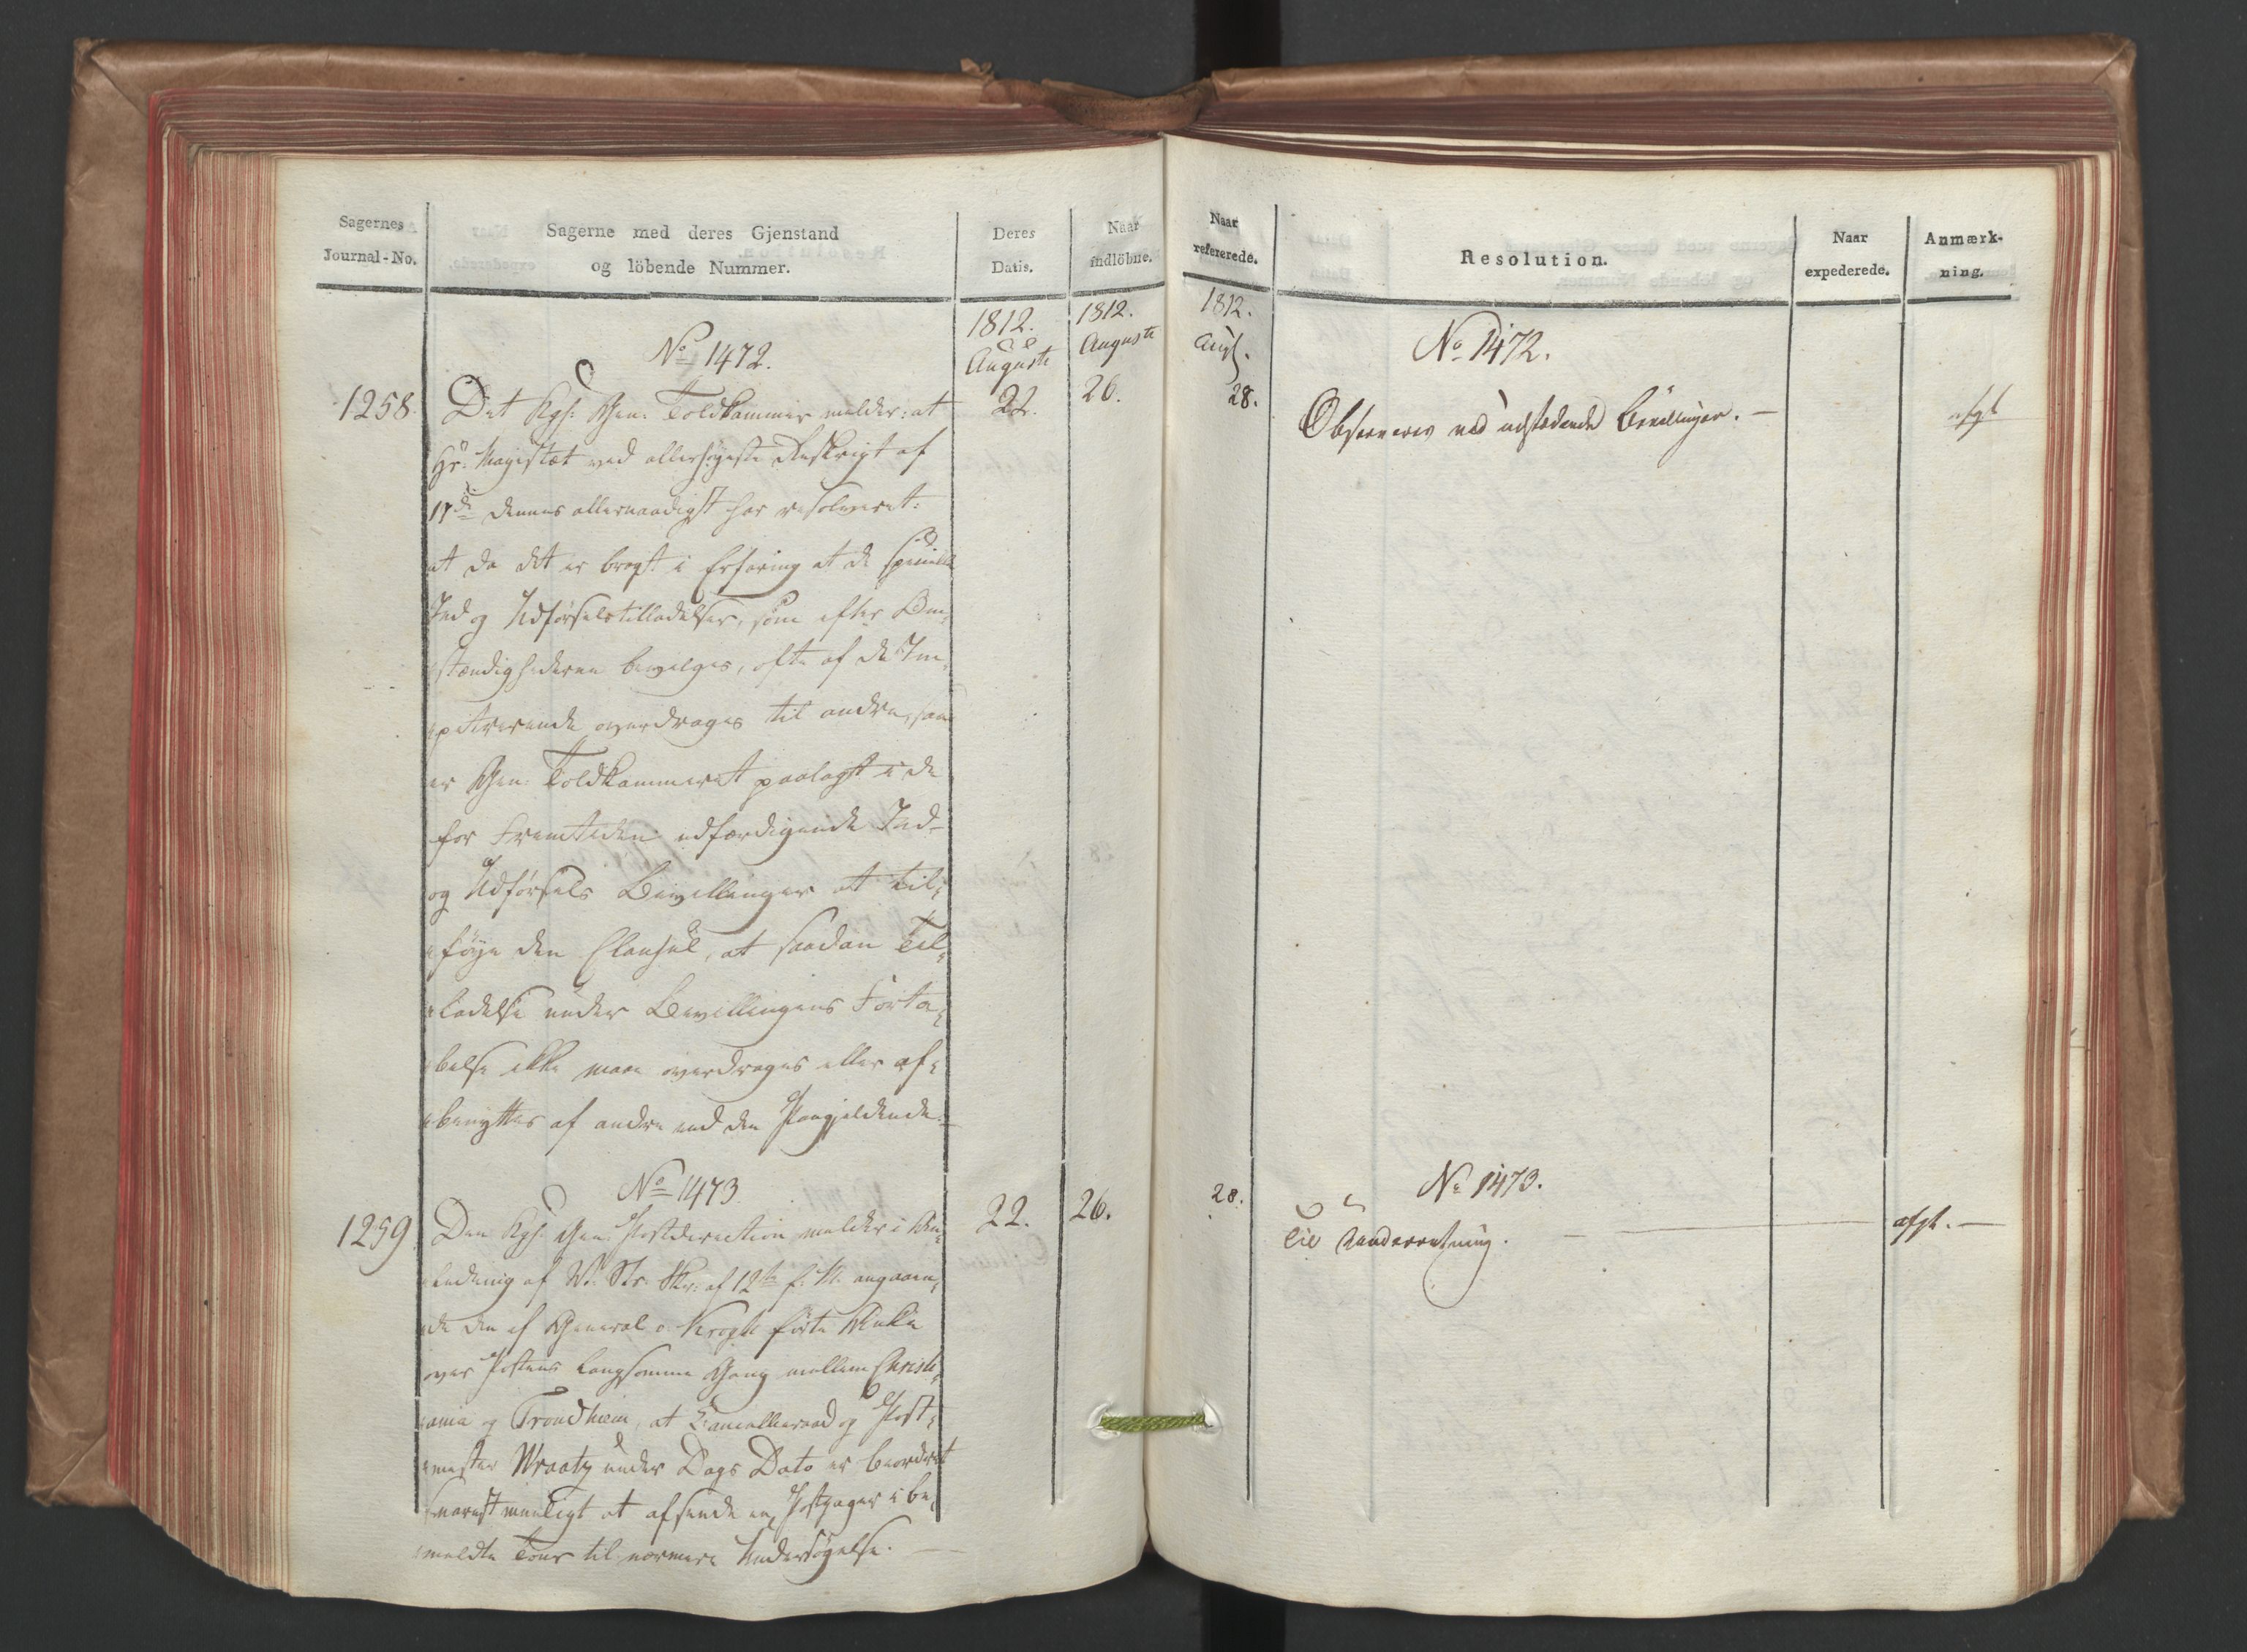 Sagernes
Journal-No.
Sagerne med deres Gjenstand
og löbende Nummer.
Deres
Datis.
Naar
indlöbne.
1812.
Auguste
1812.
Auguste
No 1472.
1258.
Det Kgl: Gen: Toldkammer melder: at
22.
26.
Hs: Majestæt ved allerhøyeste Reskript af
17de dennes allernaadigst har resolveret:
at da det er bragt i Erfaring at de specielle
Ind og Udførselstilladelser, som efter Om-
stændighederne bevilges, ofte af de Im-
petrerende overdrages til andre, saa
er Gen: Toldkammeret paalagt i de
for Fremtiden udfærdigende Ind-
og Udførsels Bevillinger at til-
føye den Clausul, at saadan Til-
ladelse under Bevillingens Forta-
belse ikke maae overdrages eller af-
benyttes af andre end den Paagjeldende.
No 1473.
1259
Den Kgl: Gen: Postdirection melder i An-
22.
26.
ledning af V: Str: Skr: af 12te f: M: angaaen-
de den af General v Krogh førte Anke
over Postens langsomme Gang mellem Christi-
ania og Trondhiem, at Cancelliraad og Post-
mester Wraatz under Dags Dato er beordret
snarest mueligt at afsende en Postpager i be-
meldte Tour til nærmere Undersøgelse.
Naar
refererede.
Resolution.
Naar
expederede.
Anmærk-
ning.
1812.
Augt.
No 1472.
28.
Observeres ved udstædende Bevillinger. —
afgt
No 1473.
28.
Til Underretning.
afgt. —